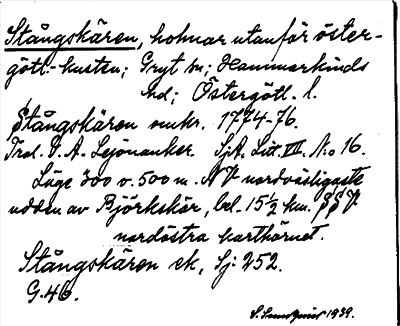 Stångskären, holmar utanför öster-
götl.-kusten; Gryt sn; Hammarkinds
hd; Östergötl. l.
Stångskären omkr. 1774-76.
Trol. V. A. Lejonanker. SjA. Litt. VII. No 16.
Läge 300 o. 500 m. NV nordvästligaste
udden av Björkskär, bel. 15½ km. SSV
nordöstra karthörnet.
Stångskären ek, Sj: 252.
G.46.
1939.